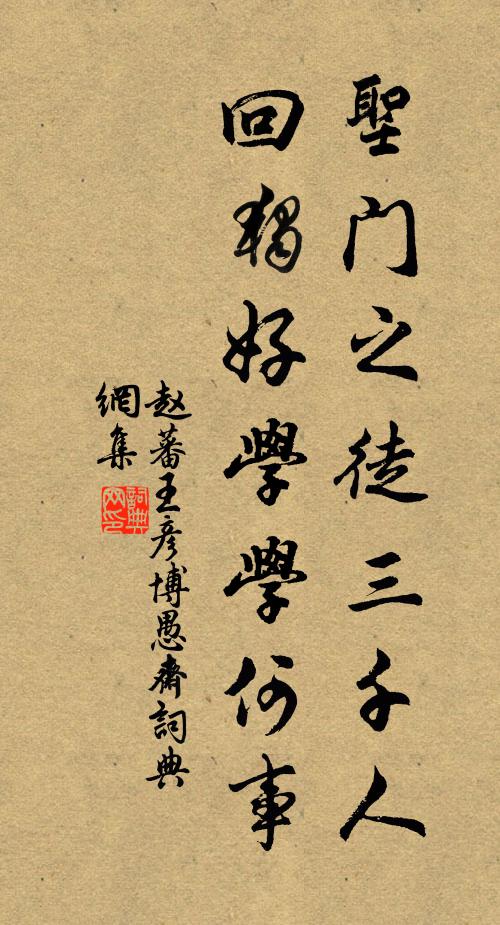 聖門之徒三千人
回獨好學學何事
赵蕃王彦博愚齋詞典
網集
詞典
网印